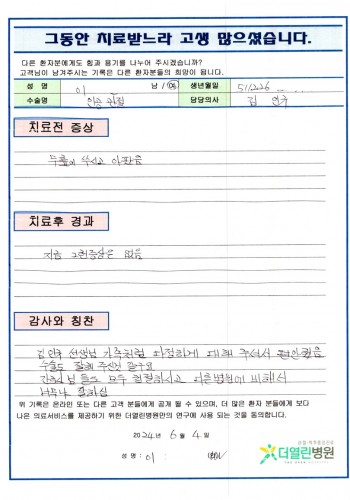 그동안 치료받느라 고생 많으셨습니다.
다른 환자분에게도 힘과 용기를 나누어 주시겠습니까?
고객님이 남겨주시는 기록은 다른 환자분들의 희망이 됩니다.
성 명 이 남 / 여 생년월일 511226
수술명 인공관절 담당의사 김 연우
치료전 증상
무릎이 쑤시고 아팠음
치료후 경과
지금 그런증상은 없음
감사와 칭찬
선생님 가족처럼 다정하게 대해 주셔서 편안했음
수술도 잘해 주신것 같구요
간호사님들도 모두 친절하시고 다른병원에 비해서
너무나 잘하심
위 기록은 온라인 또는 다른 고객분들에게 공개 될 수 있으며, 더 많은 환자 분들에게 보다
나은 의료서비스를 제공하기 위한 더열린병원만의 연구에 사용 되는 것을 동의합니다.
2024년 6 월 4 일
성 명 : 이
더열린병원